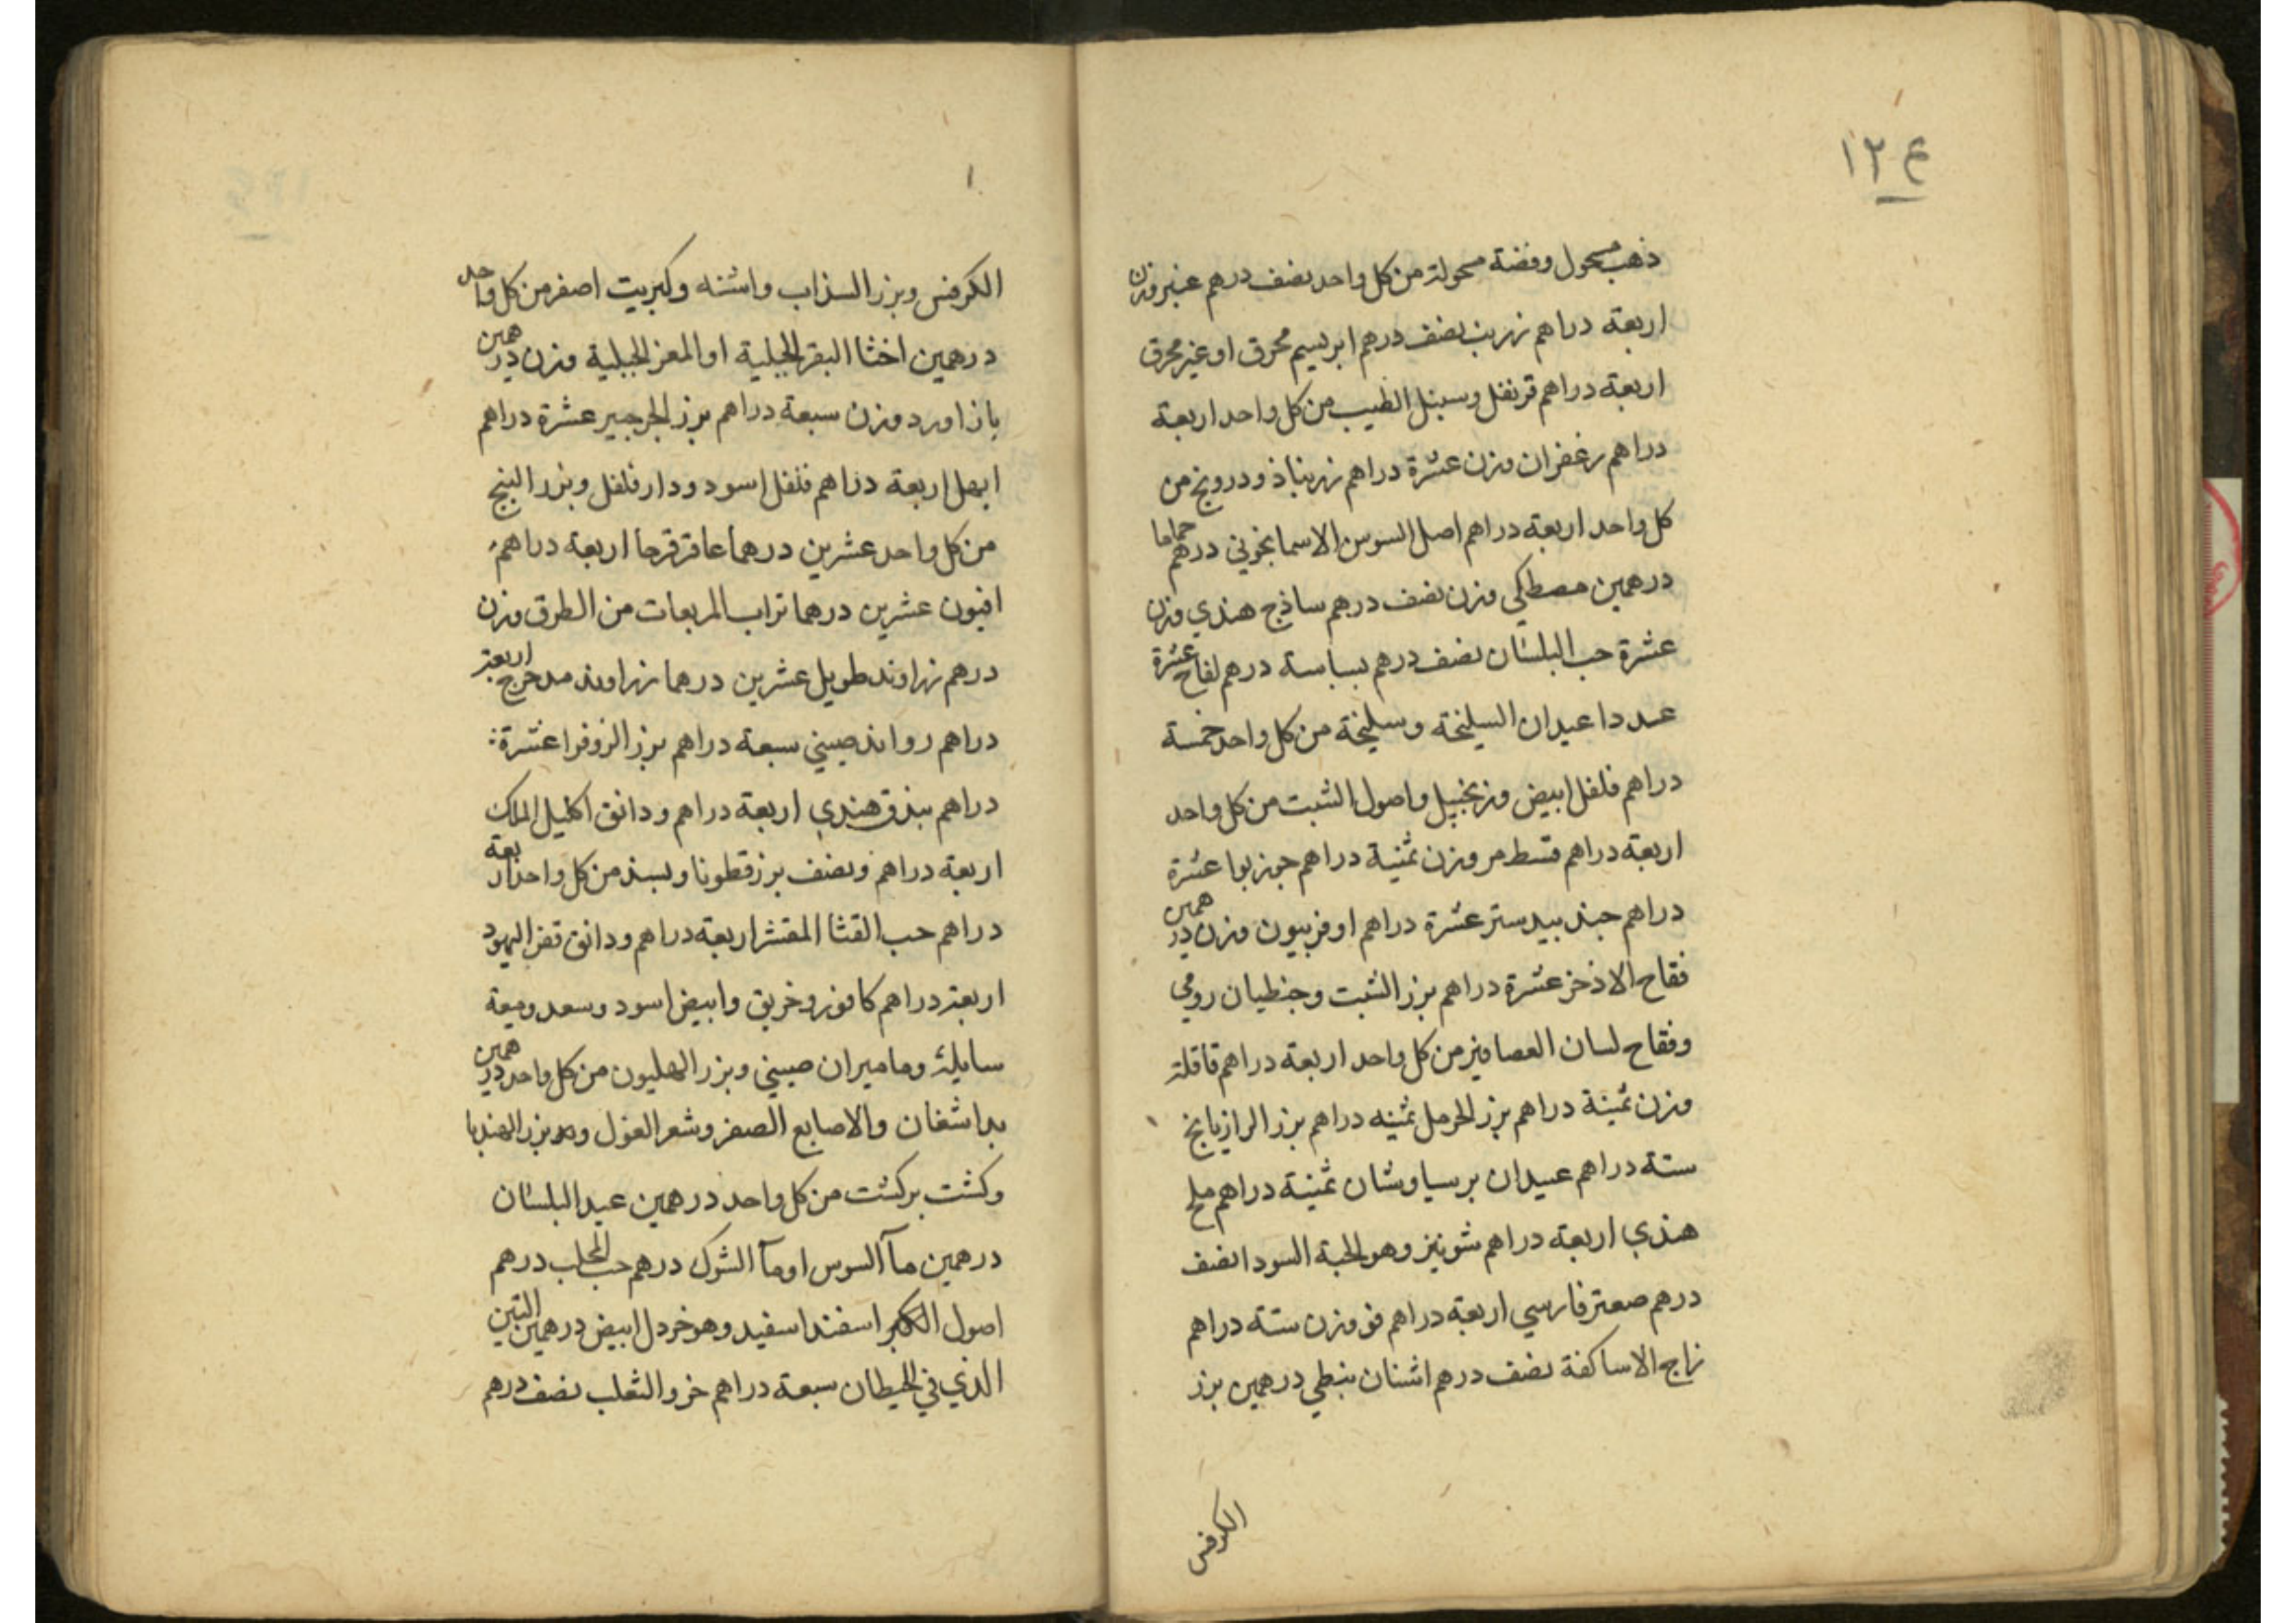 ١٢٤
ذهب مسحول وفضة مسحولة من كل واحد نصف درهم عنبر وزن
اربعة دراهم زرنب نصف درهم ابريسم محرق او غير محرق
اربعة دراهم قرنفل وسنبل الطيب من كل واحد اربعة
دراهم زعفران وزن عشرة دراهم زرنباذ ودرونج من
كل واحد اربعة دراهم اصل السوس الاسمانجوني درهم حماما
درهمين مصطكي وزن نصف درهم ساذج هندي وزن
عشرة حب البلسان نصف درهم بسباسة درهم لفاح عشرة
عددا عيدان السليخة وسليخة من كل واحد خمسة
دراهم فلفل ابيض وزنجبيل واصول الشبت من كل واحد
اربعة دراهم قسط مر وزن ثمنية دراهم جوزبوا عشرة
دراهم جندبيدستر عشرة دراهم اوفربيون وزن درهمين
فقاح الاذخر عشرة دراهم بزر الشبت وجنطيان رومي
وفقاح لسان العصافير من كل واحد اربعة دراهم قاقلة
وزن ثمينة دراهم بزر الحرمل ثمنيه دراهم بزر الرازيانج
ستة دراهم عيدان برسياوشان ثمنية دراهم ملح
هندي اربعة دراهم شونيز وهو الحبة السودا نصف
درهم صعتر فارسي اربعة دراهم فو وزن ستة دراهم
زاج الاساكفة نصف درهم اشنان نبطي درهمين بزر
الكرفس
الكرفس وبزر السذاب واشنه وكبريت اصفر من كل واحد
درهمين اخثا البقر الجبلية او المعز الجبلية وزن درهمين
باذاورد وزن سبعة دراهم بزر الجرجير عشرة دراهم
ابهل اربعة دراهم فلفل اسود ودارفلفل وبزر البنج
من كل واحد عشرين درهما عاقرقرحا اربعة دراهم
افيون عشرين درهما تراب المربعات من الطرق وزن
درهم زراوند طويل عشرين درهما زراوند مدحرج اربعة
دراهم رواند صيني سبعة دراهم بزر الزوفرا عشرة
دراهم بندق هندي اربعة دراهم ودانق اكليل الملك
اربعة دراهم ونصف بزر قطونا وبسذ من كل واحد اربعة
دراهم حب القثا المقشر اربعة دراهم ودانق قفر اليهود
اربعة دراهم كافور وخربق وابيض اسود وسعد وميعة
سايلة وماميران صيني وبزر الهليون من كل واحد درهمين
بداشغان والاصابع الصفر وشعر الغول وبزر الهندبا
وكشت بركشت من كل واحد درهمين عيد البلسان
درهمين مآ السوس او مآ الشوك درهم حب المحلب درهم
اصول الكبر اسفند اسفيد وهو خردل ابيض درهمين التبن
الذي في الحيطان سبعة دراهم خرو الثعلب نصف درهم